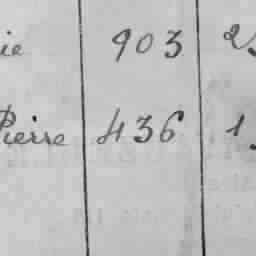 ie 903 2
Pierre 436 1